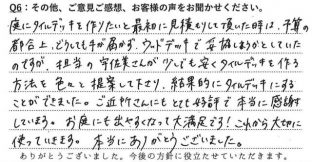 Q6：その他、ご意見ご感想、お客様の声をお聞かせください。
庭にタイルデッキを作りたいと最初に見積りして頂いた時は、予算の
都合上、どうしても手が届かず、ウッドデッキで妥協しようとしていた
のですが、担当の宇佐美さんが少しでも安くタイルデッキを作る
方法を色々と提案して下さり、結果的にタイルデッキにする
ことができました。ご近所さんにもとても好評で本当に感謝
しています。お庭にも出やすくなって大満足です！これから大切に
使っていきます。本当にありがとうございました。
ありがとうございました。今後の方針に役立たせていただきます。